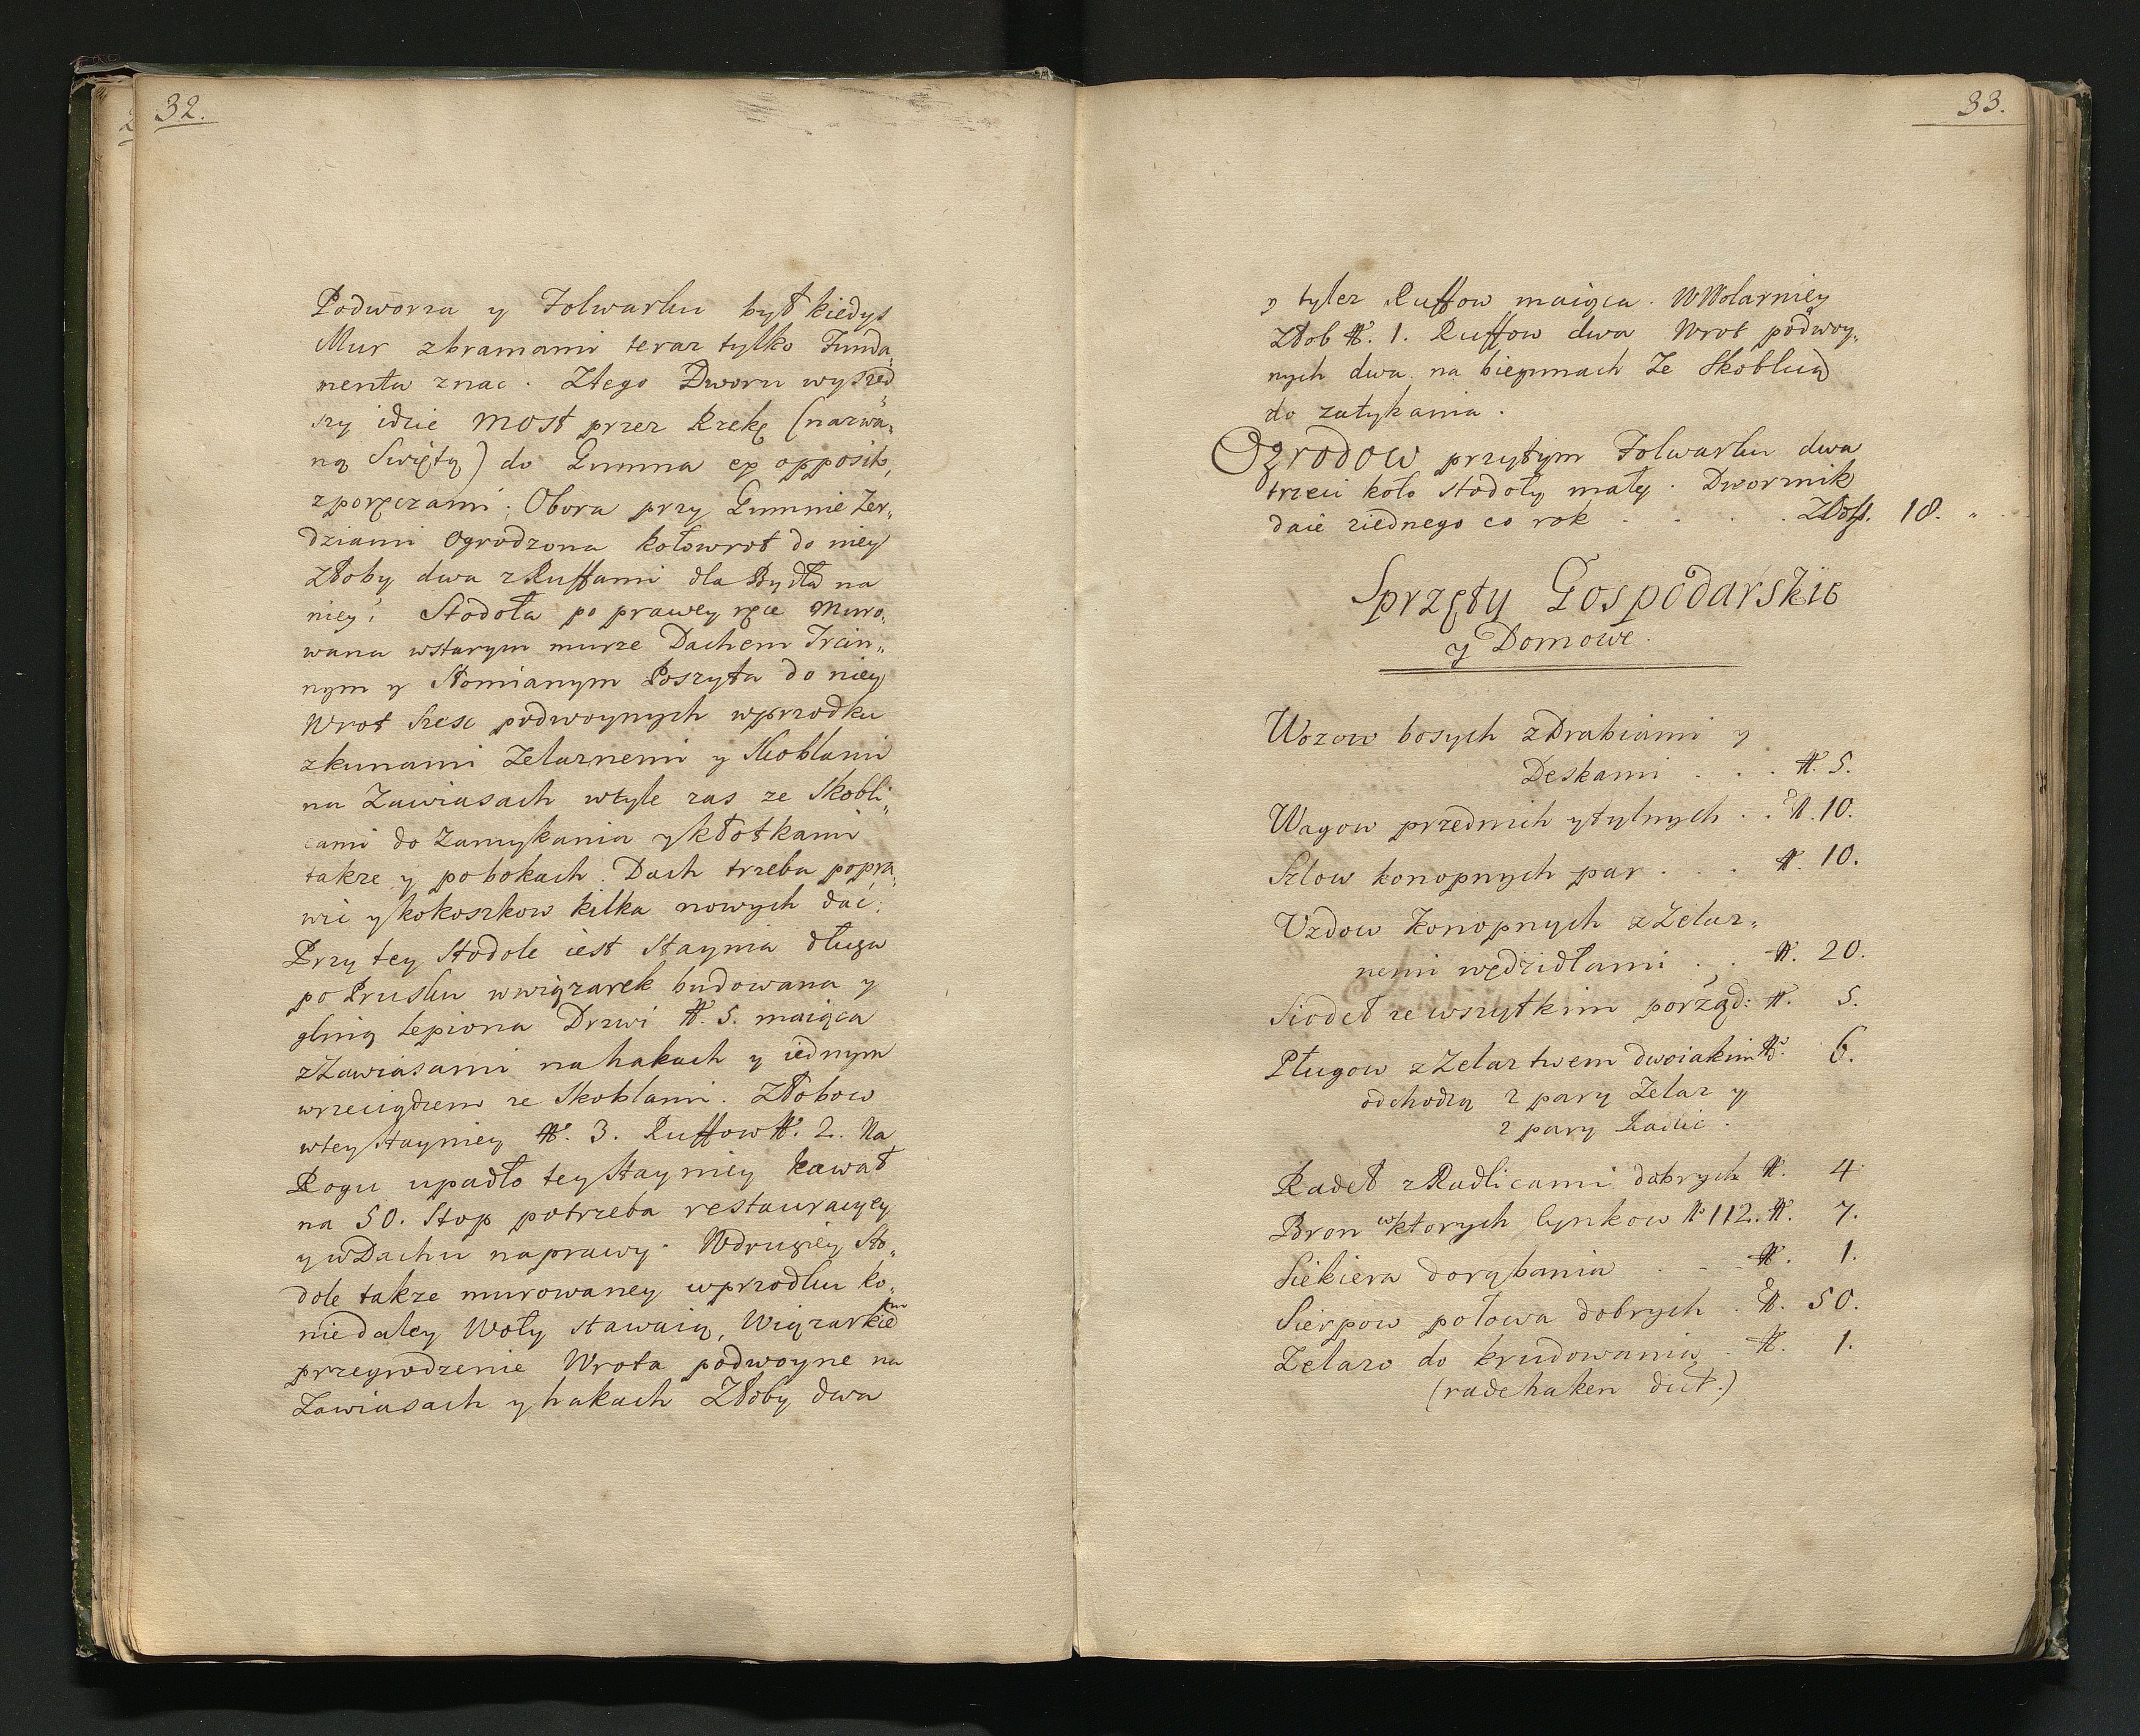 32.
Podworza y Folwarku był kiedyś
Mur zbramami teraz tylko Funda„
menta znac. Ztego Dworu wyszed
szy idzie most przez Rzekę (nazwa„
ną Swiętą) do Gumna ex opposito,
zporęczami. Obora przy Gumnie Zer„
dziami Ogrodzona kołowrot do niey
Złoby dwa zRuffami dla Bydła na
niey. Stodoła po prawey ręce Muro„
wana wstarym murze Dachem Trcin„
nym y Słomianym Poszyta do niey
Wrot szesc podwoynych wprzodku
zkunami Zelaznemi y Skoblami
na Zawiasach wtyle zas ze Skobli„
cami do Zamykania ykłotkami
takze y pobokach. Dach trzeba popra„
wic ykokoszkow kilka nowych dac.
Przy tey Stodole iest Staynia długa
po Prusku wwiązarek budowana y
gliną lepiona Drzwi No. 5. maiąca
zZawiasami nahakach y iednym
wrzeciądzem ze Skoblami. Złobow
wtey Stayniey No. 3. Ruffow No. 2. Na
Rogu upadło tey Stayniey kawał
na 50. Stop potrzeba restauracyey
y wDachu naprawy. Wdrugiey Sto„
dole takze murowaney wprzodku ko„
nie daley Woły stawaią, Wiązarkiem
przegrodzenie Wrota podwoyne na
Zawiasach yhakach Złoby dwa
33.
y tylez Ruffow maiąca. WWolarniey
Złob No. 1. Ruffow dwa Wrot podwoy„
nych dwa na biegunach Ze Skoblicą
do zatykania.
Ogrodow przytym Folwarku dwa
trzeci koło stodoły małey. Dwornik
daie ziednego co rok . . . . Złotp. 18. „
Sprzęty Gospodarskie
y Domowe.
Wozow bosych zDrabiami y
Deskami . . . No. 5.
Wagow przednich ytylnych . . No. 10.
Szlow konopnych par . . . No. 10.
Uzdow Konopnych zZelaz„
nemi wędzidłami . . No. 20.
Siodeł ze wszytkim porząd: No. 5.
Pługow zZelaztwem dwoiakim No. 6.
odchodzą 2 pary Zelaz y
2 pary Radlic.
Radeł zRadlicami dobrych No. 4
Bron wktorych Cynkow No 112. No. 7.
Siekiera dorąbania . - - No. 1.
Sierpow połowa dobrych . No. 50.
Zelazo do krudowania . No. 1.
(radehaken dict.)